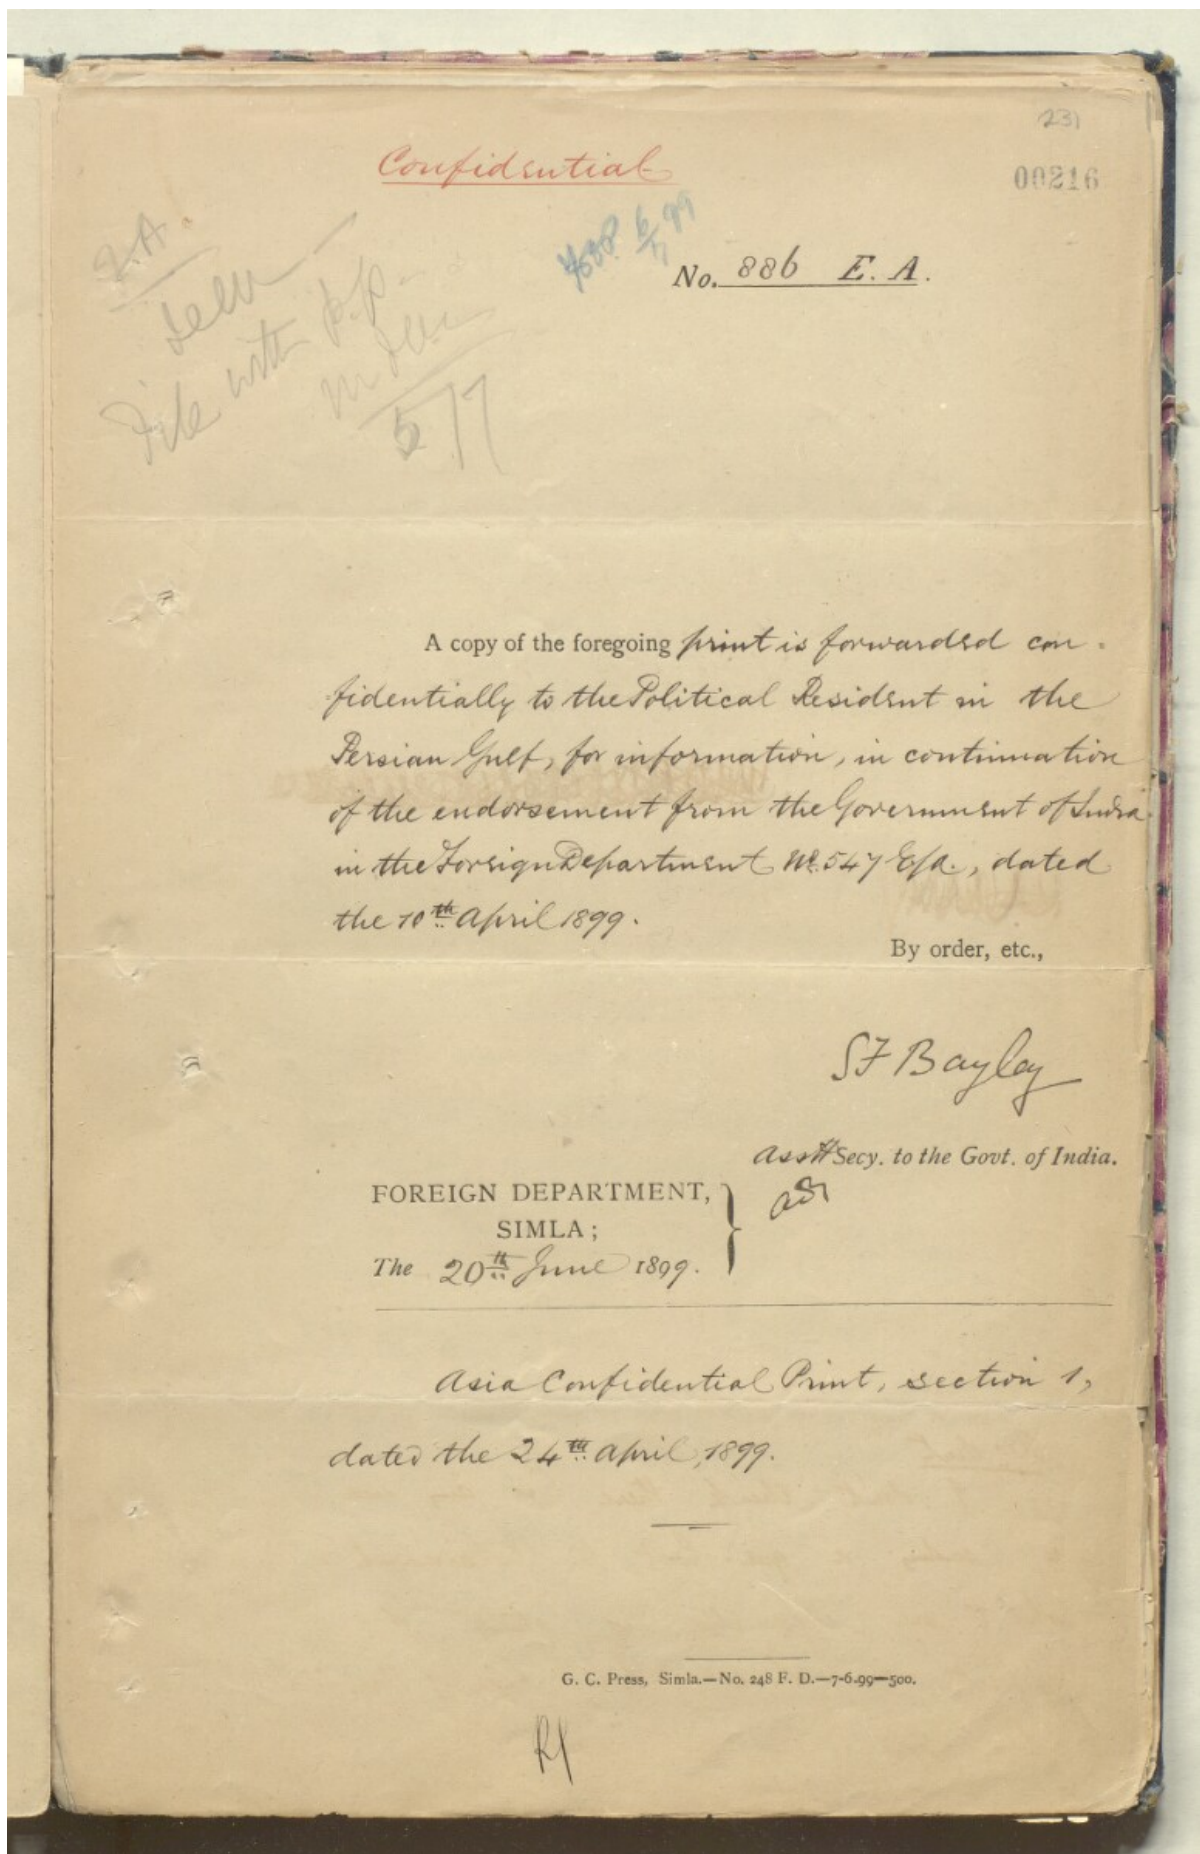 231
Confidential
00216
No. 886 E. A.
File with p.p.
5/7
A copy of the foregoing print is forwarded con-
fidentially to the Political Resident in the
Persian Gulf, for information, in continuation
of the endorsement from the Government of India
in the Foreign Department No. 547 E/A., dated
the 10th April 1899.
By order, etc.,
S F Bayley
Asstt Secy. to the Govt. of India.
FOREIGN DEPARTMENT,
SIMLA;
The 20th June 1899.
Asia Confidential Print, section 1,
dated the 24th April, 1899.
G. C. Press, Simla.—No. 248 F. D.—7-6-99—500.